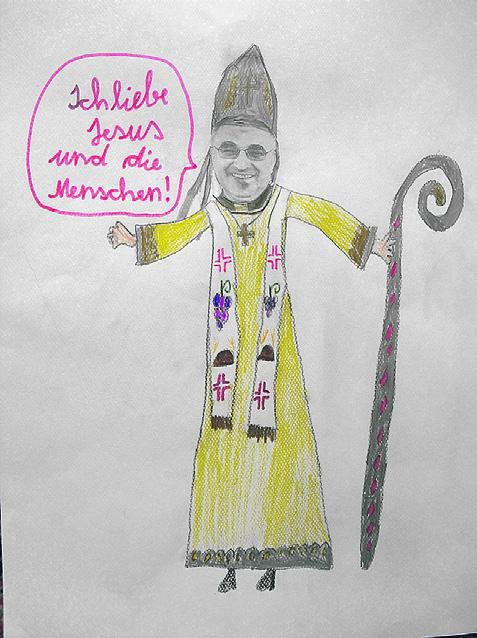 Ich liebe
Jesus
und die
Menschen!